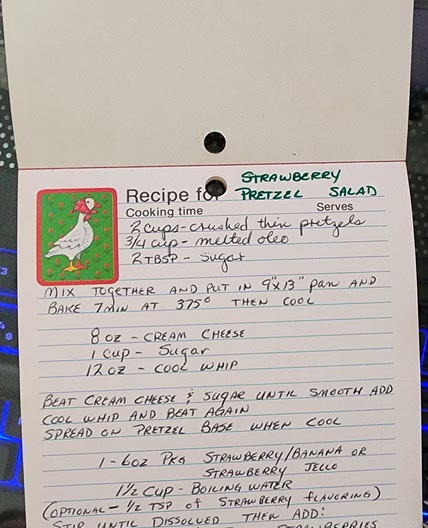 STRAWBERRY
Recipe for PRETZEL SALAD
Cooking time Serves
2 cups - crushed thin pretzels
3/4 cup - melted oleo
2 TBSP - Sugar
MIX TOGETHER AND PUT IN 9"x13" pan AND
BAKE 7 MIN AT 375° THEN COOL
8 oz - CREAM CHEESE
1 cup - Sugar
12 oz - COOL WHIP
BEAT CREAM CHEESE & SUGAR UNTIL SMOOTH ADD
COOL WHIP AND BEAT AGAIN
SPREAD ON PRETZEL BASE WHEN COOL
1 - 6oz PKG STRAWBERRY/BANANA OR
STRAWBERRY JELLO
1 1/2 CUP - BOILING WATER
(OPTIONAL - 1/2 TSP of STRAWBERRY FLAVORING)
STIR UNTIL DISSOLVED THEN ADD:
STRAWBERRIES